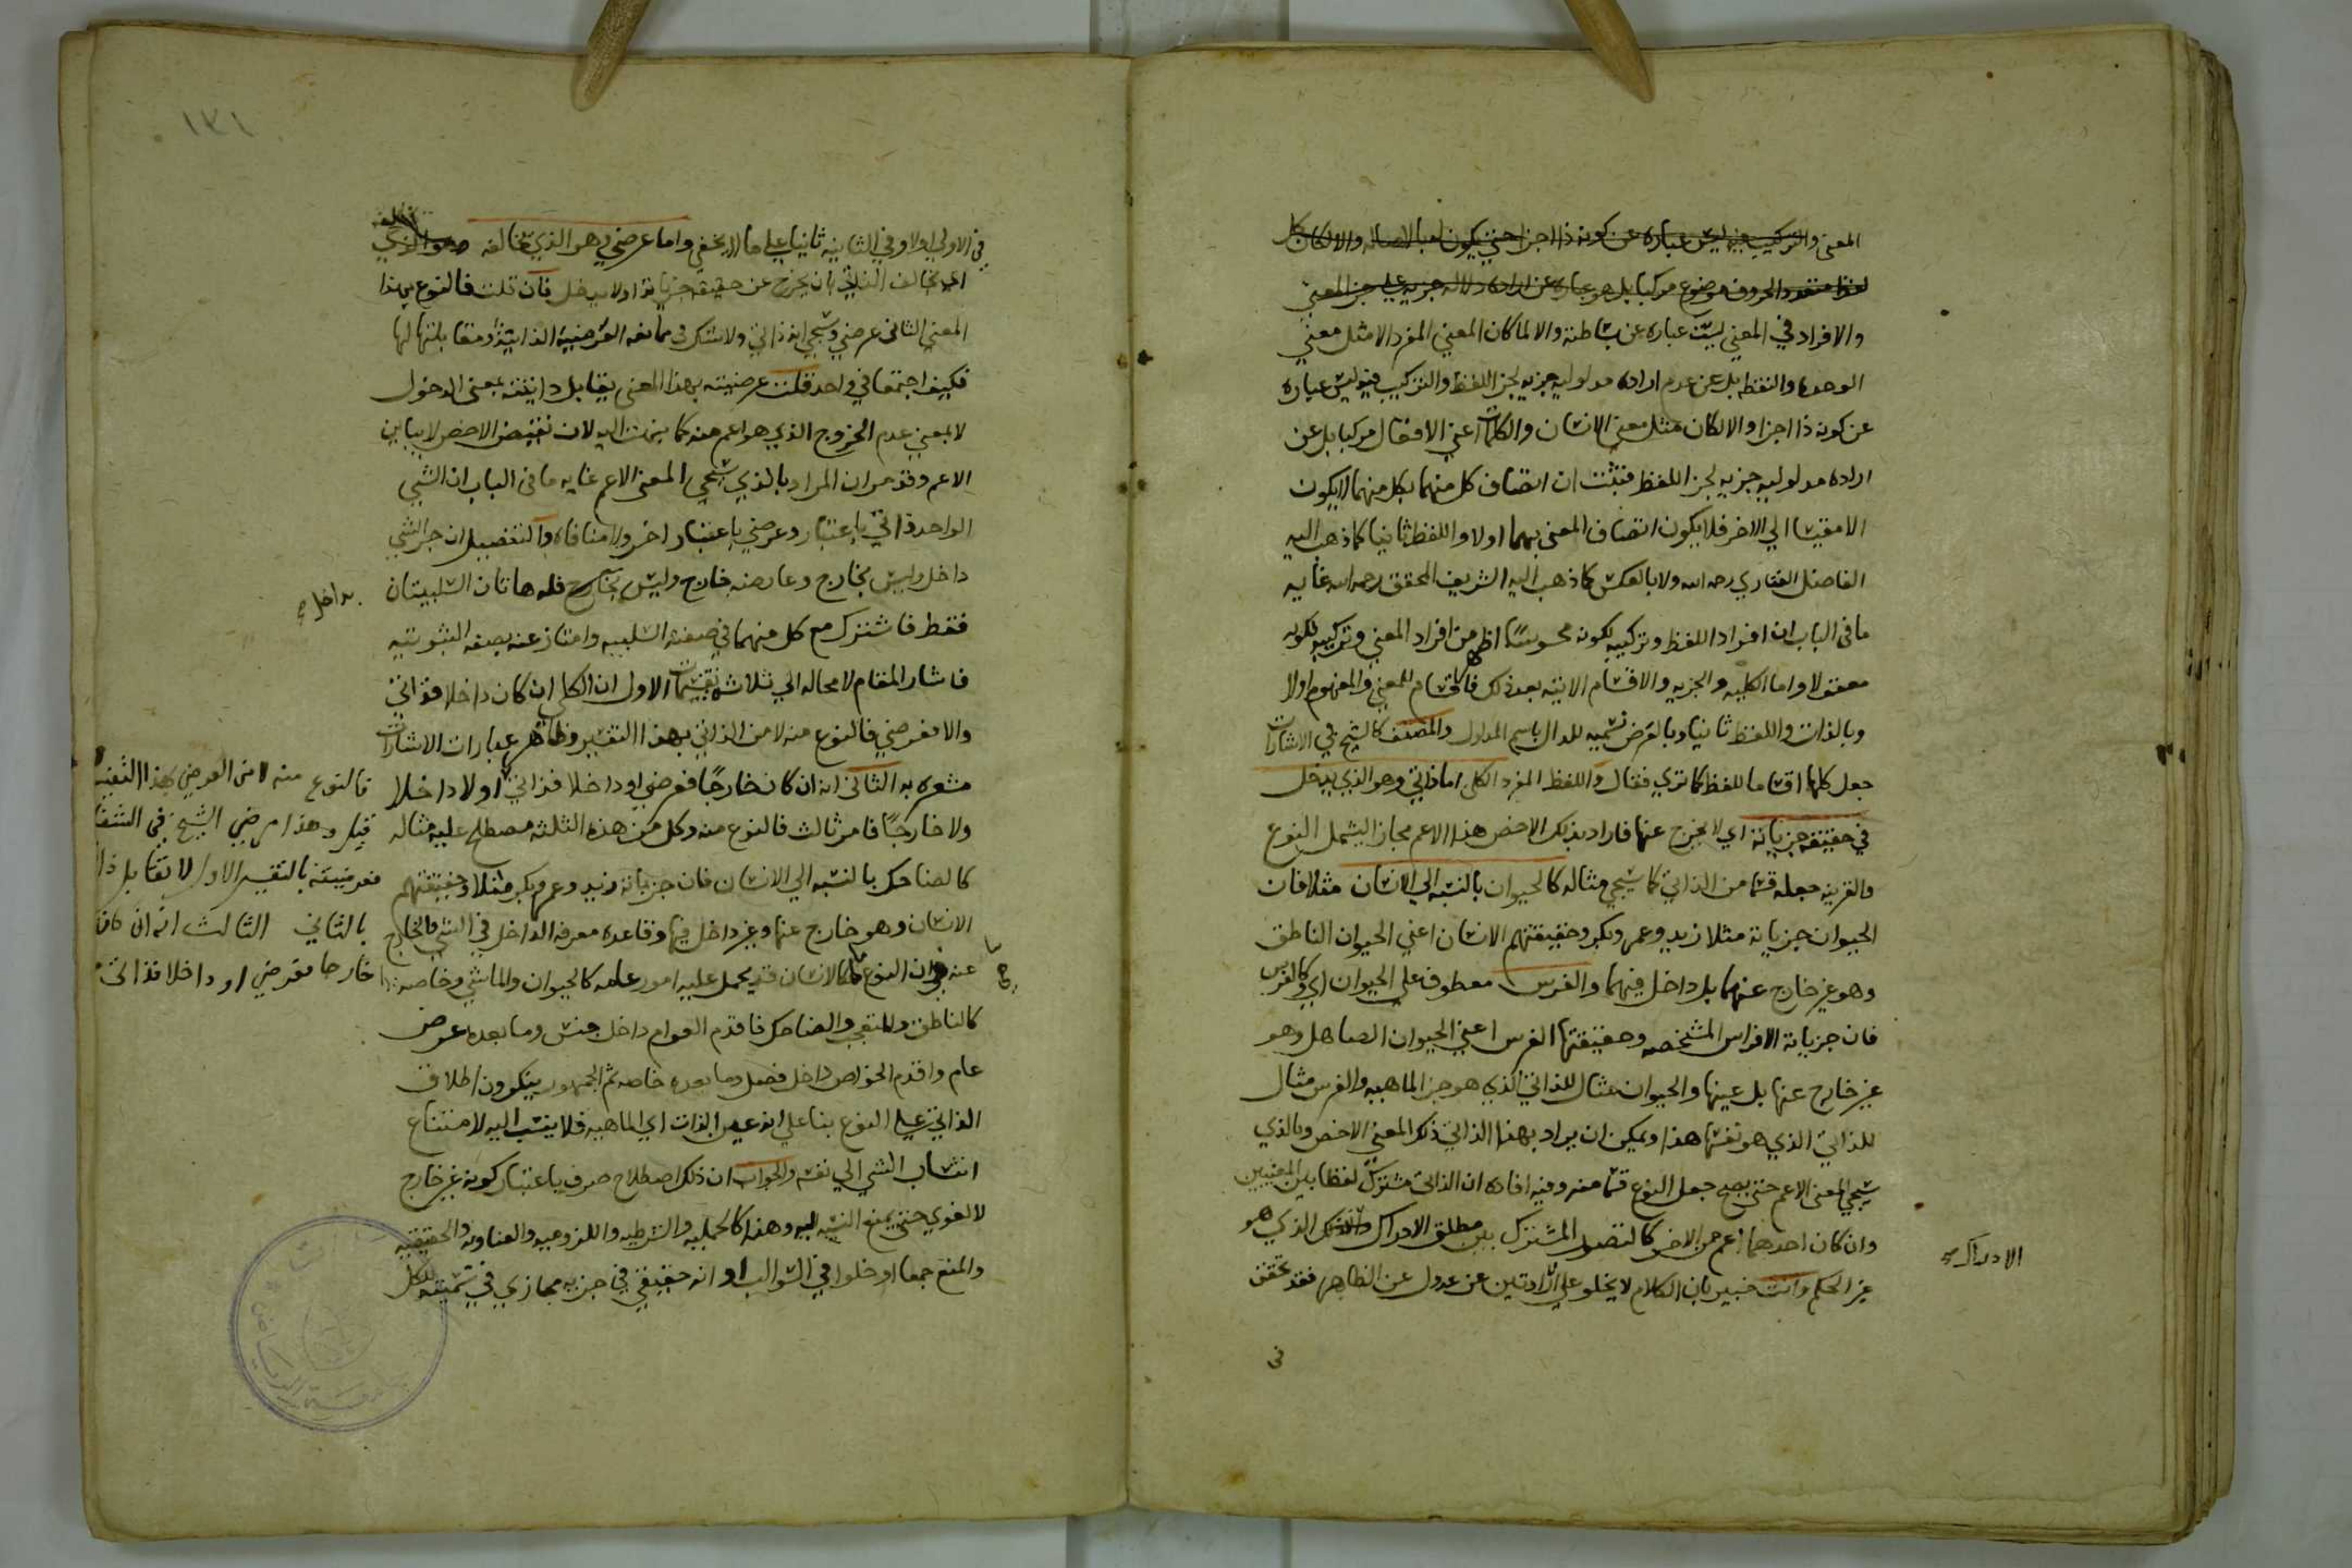 المعني والتركيب فيه ليس عباره عن كونه ذا اجزا حتي يكون لها بالاصاله والا لكان كل
لفظ متعدد الحروف موضوع مركبا بل هو عباره عن اراده دلاله جزيه علي جز المعني
والافراد في المعني ليست عباره عن بساطته والا لما كان المعني المفرد الا مثل معني
الوحده والنقطه بل عن عدم اراده مدلوليه جزيه لجز اللفظ والتركيب فيه ليس عباره
عن كونه ذا اجزا والا لكان مثل معني الانسان والكلمات اعني الافعال مركبا بل عن
اراده مدلوليه جزيه لجز اللفظ فثبت ان اتصاف كل منهما بكل منهما لا يكون
الا مقيسا الي الاخر فلا يكون اتصاف المعني بهما اولا واللفظ ثانيا كما ذهب اليه
الفاضل الفناري رحمه الله ولا بالعكس كما ذهب اليه الشريف المحقق رحمه الله غايه
ما في الباب ان افراد اللفظ وتركيبه لكونه محسوسا اظهر من افراد المعني وتركيبه لكونه
معقولا واما الكليه والجزيه والاقسام الاتيه بعد ذلك فاقسام للمعني والمفهوم اولا
وبالذات واللفظ ثانيا وبالعرض تسميه للدال باسم المدلول والمصنف كالشيخ في الاشارات
جعل كلها اقساما للفظ كما تري فقال واللفظ المفرد الكلي اما ذاتي وهو الذي يدخل
في حقيقه جزياته اي لا يخرج عنها فاراد بذلك الاخص هذا الاعم مجازا ليشمل النوع
والقرينه جعله قسما من الذاتي كما سيجي مثاله كالحيوان بالنسبه الي الانسان مثلا فان
الحيوان جزياته مثلا زيد وعمرو وبكر وحقيقتهم الانسان اعني الحيوان الناطق
وهو غير خارج عنهما بل داخل فيهما والفرس معطوف علي الحيوان اي وكالفرس
فان جزياته الافراس المشخصه وحقيقتها الفرس اعني الحيوان الصاهل وهو
غير خارج عنها بل عينها والحيوان مثال للذاتي الذي هو جز الماهيه والفرس مثال
للذاتي الذي هو نفسها هذا ويمكن ان يراد بهذا الذاتي ذلك المعني الاخص وبالذي
سيجي المعني الاعم حتي يصح جعل النوع قسما منه وفيه افاده ان الذاتي مشترك لفظا بين المعنيين
وان كان احدهما اعم من الاخر كالتصور المشترك بين مطلق الادراك الذي هو
الادراك صح
غير الحكم وانت خبير بان الكلام لا يخلو علي الارادتين عن عدول عن الظاهر فقد تحقق
في
١٣١
في الاولي اولا وفي الثانيه ثانيا علي ما لا يخفي واما عرضي وهو الذي يخالفه وهو الذي
اي يخالف الذاتي بان يخرج عن حقيقه جزياته او لا يدخل فان قلت فالنوع بهذا
المعني الثاني عرضي وسيجي انه ذاتي ولا شك في ممانعه العرضيه الذاتيه ومقابلتها لها
فكيف اجتمعا في واحد قلت عرضيته بهذا المعني يقابل ذاتيته بمعني الدخول
لا بمعني عدم الخروج الذي هو اعم منه كما ينبت اليه لان نقيض الاخص لا يباين
الاعم وقد مر ان المراد بالذي سيجي المعني الاعم غايه ما في الباب ان الشي
الواحد ذاتي باعتبار وعرضي باعتبار اخر ولا منافاه والتفصيل ان جز الشي
داخل وليس بخارج وعارضه خارج وليس بخارج فله هاتان السلبيتان
بداخل صح
فقط فاشترك مع كل منهما في صفته السلبيه وامتاز عنه بصفه الثبوتيه
فاشار المقام لا محاله الي ثلاث تفسيرات الاول ان الكلي ان كان داخلا فذاتي
والا فعرضي فالنوع منه لا من الذاتي بهذا التفسير وظاهر عبارات الاشارات
مشعره به الثاني انه ان كان خارجا فعرضي او داخلا فذاتي او لا داخلا
ولا خارجا فامر ثالث فالنوع منه وكل من هذه الثلثه مصطلح عليه مثاله
كالضاحك بالنسبه الي الانسان فان جزياته زيد وعمرو وبكر مثلا وحقيقتهم
الانسان وهو خارج عنها وغير داخل فيها وقاعده معرفه الداخل في الشي والخارج
عنه ان النوع كالانسان قد يحمل عليه امور عامه كالحيوان والماشي وخاصه
كالناطق والمتعجب والضاحك فاقدم العوام داخل جنس وما بعده عرض
عام واقدم الخواص داخل فصل وما بعده خاصه ثم الجمهور ينكرون اطلاق
الذاتي علي النوع بنا علي انه عين الذات اي الماهيه فلا ينسب اليه لامتناع
انتساب الشي الي نفسه والجواب ان ذلك اصطلاح صرف باعتبار كونه غير خارج
لا لغوي حتي يمنع النسبه اليه وهذا كالحمليه والشرطيه واللزوميه والعناديه والحقيقيه
والمنع جمعا او خلوا في السوالب او انه حقيقي في جزيه مجازي في تسميته للكل
فالنوع منه لا من العرضي بهذا التفسير
قيل وهذا مرضي الشيخ في الشفا
فعرضيته بالتفسير الاول لا تقابل
بالثاني الثالث انه ان كان
خارجا فعرضي او داخلا فذاتي